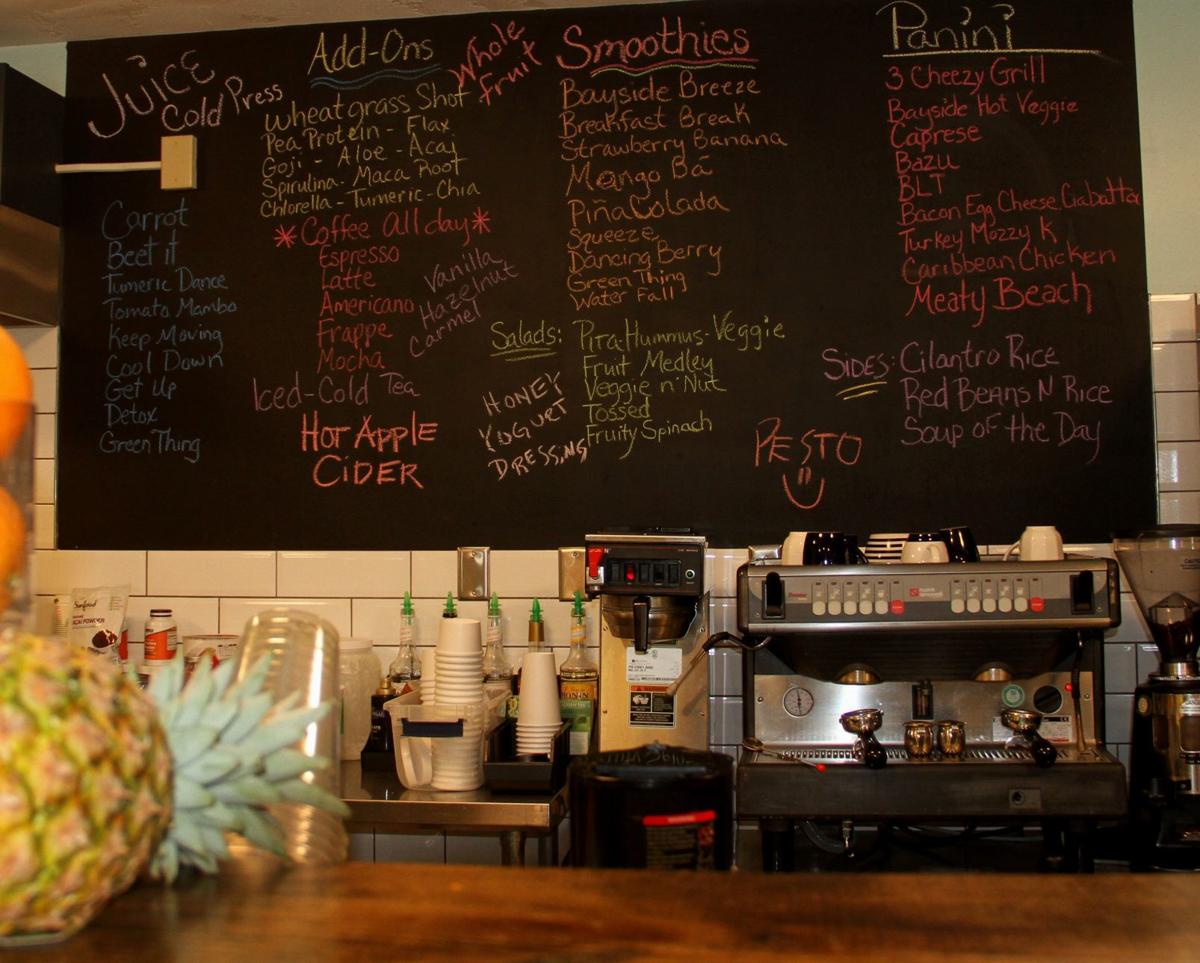 Juice
Cold Press
Carrot
Beet it
Tumeric Dance
Tomato Mambo
Keep Moving
Cool Down
Get Up
Detox
Green Thing
Add-Ons
Whole
fruit
Wheatgrass Shot
Pea Protein - Flax
Goji - Aloe - Acai
Spirulina - Maca Root
Chlorella - Tumeric - Chia
*Coffee All day*
Espresso
Latte
Americano
Frappe
Mocha
Vanilla
Hazelnut
Carmel
Iced-Cold Tea
Hot Apple
Cider
Smoothies
Bayside Breeze
Breakfast Break
Strawberry Banana
Mango Bā
Piña Colada
Squeeze
Dancing Berry
Green Thing
Water Fall
Salads: Pita Hummus-Veggie
Fruit Medley
Veggie n' Nut
Tossed
Fruity Spinach
HONEY
YOGURT
DRESSING
Panini
3 Cheezy Grill
Bayside Hot Veggie
Caprese
Bazu
BLT
Bacon Egg Cheese Ciabatta
Turkey Mozzy K
Caribbean Chicken
Meaty Beach
SIDES: Cilantro Rice
Red Beans N Rice
Soup of the Day
PESTO
Sunfood